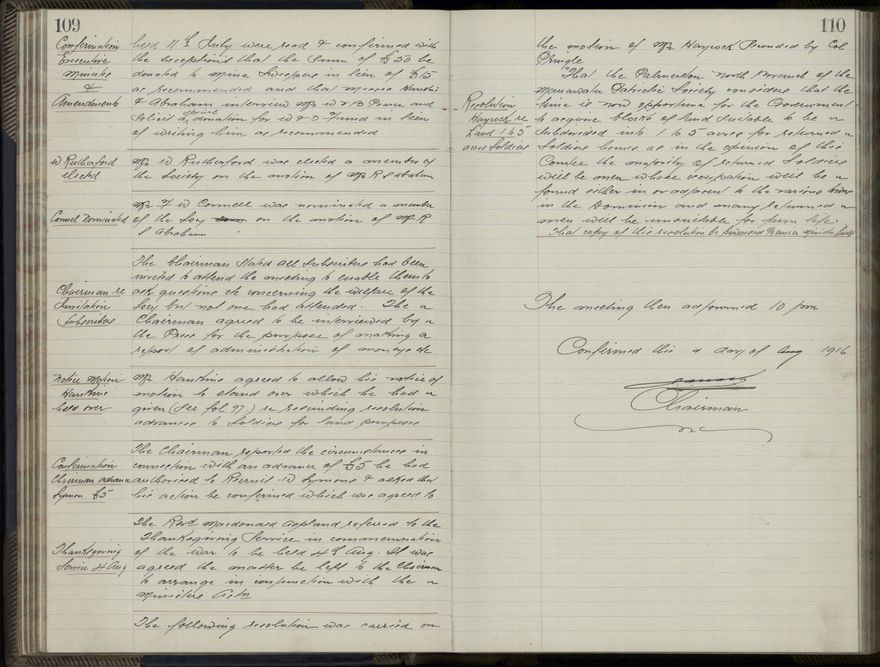 109
Confirmation
Executive
Minutes
&
Amendments
held 11th July were read & confirmed with
the exceptions that the sum of £50 be
donated to Mine Sweepers in lieu of £15
as recommended and that Messrs Hankins
& Abraham interview Mr W B Prince and
Solicit a special donation for W & D Fund in lieu
of writing him as recommended
W Rutherford
elected
Mr W Rutherford was elected a member of
the Society on the motion of Mr R S Abraham
Connell Nominated
Mr W Connell was nominated a member
of the Socy on the motion of Mr R
S Abraham
Chairman re
Invitation
Subscribers
The Chairman stated all Subscribers had been
invited to attend the meeting to enable them to
ask questions etc concerning the welfare of the
Socy but not one had attended. The
Chairman agreed to be interviewed by
the Press for the purpose of making a
report of administration of moneys etc
Notice Motion
Hankins
held over
Mr Hankins agreed to allow his notice of
motion to stand over which he had
given (See fol 97) re rescinding resolution
advances to Soldiers for land purposes
Confirmation
Chairman advance
Symons £5
The Chairman reported the circumstances in
connection with an advance of £5 he had
authorised to Recruit W Symons & asked that
his action be confirmed which was agreed to
Thanksgiving
Service 4 Aug
The Revd Macdonald Aspland referred to the
Thanksgiving Service in commemoration
of the War to be held 4th Aug. It was
agreed the matter be left to the Chairman
to arrange in conjunction with the
Ministers Assn
The following resolution was carried on
110
the motion of Mr Haycock Seconded by Col
Pringle
Resolution
Haycock re
Land 1 to 5
acres Soldiers
"That the Palmerston North Branch of the
Manawatu Patriotic Society considers that the
time is now opportune for the Government
to acquire blocks of land suitable to be
Subdivided into 1 to 5 acres for returned
Soldiers homes as in the opinion of this
Comtee the majority of returned Soldiers
will be men whose occupation will be
found either in or adjacent to the various towns
in the Dominion and many returned
men will be unsuitable for farm life.
That copy of this resolution be forwarded Premier Minister Lands
The meeting then adjourned 10 pm
Confirmed this 4 day of Aug 1916
Chairman